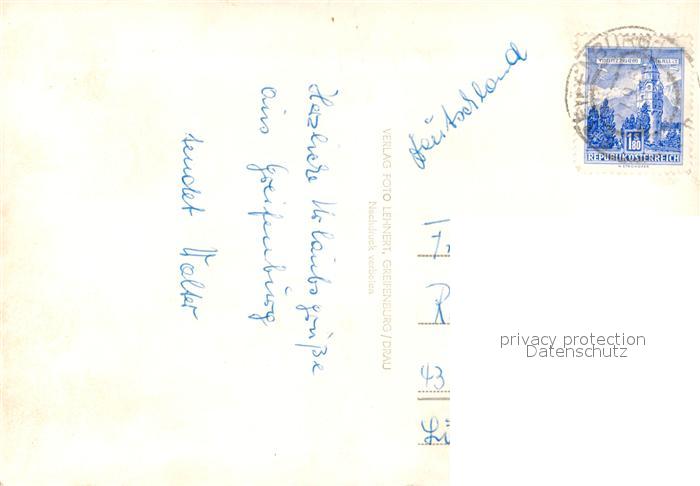 Herzliche Urlaubsgrüße
aus Greifenburg
sendet Walter
VERLAG FOTO LEHNERT, GREIFENBURG/DRAU
Nachdruck verboten
Deutschland
43
1.80
REPUBLIK ÖSTERREICH
privacy protection
Datenschutz